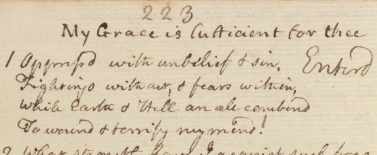 223
My Grace is Sufficient for thee
1 Oppress'd with unbelief & sin, Enter'd
Fightings without, & fears within,
While Earth & Hell are combind
To wound & terrify my mind!
2 What strength have I against such foes